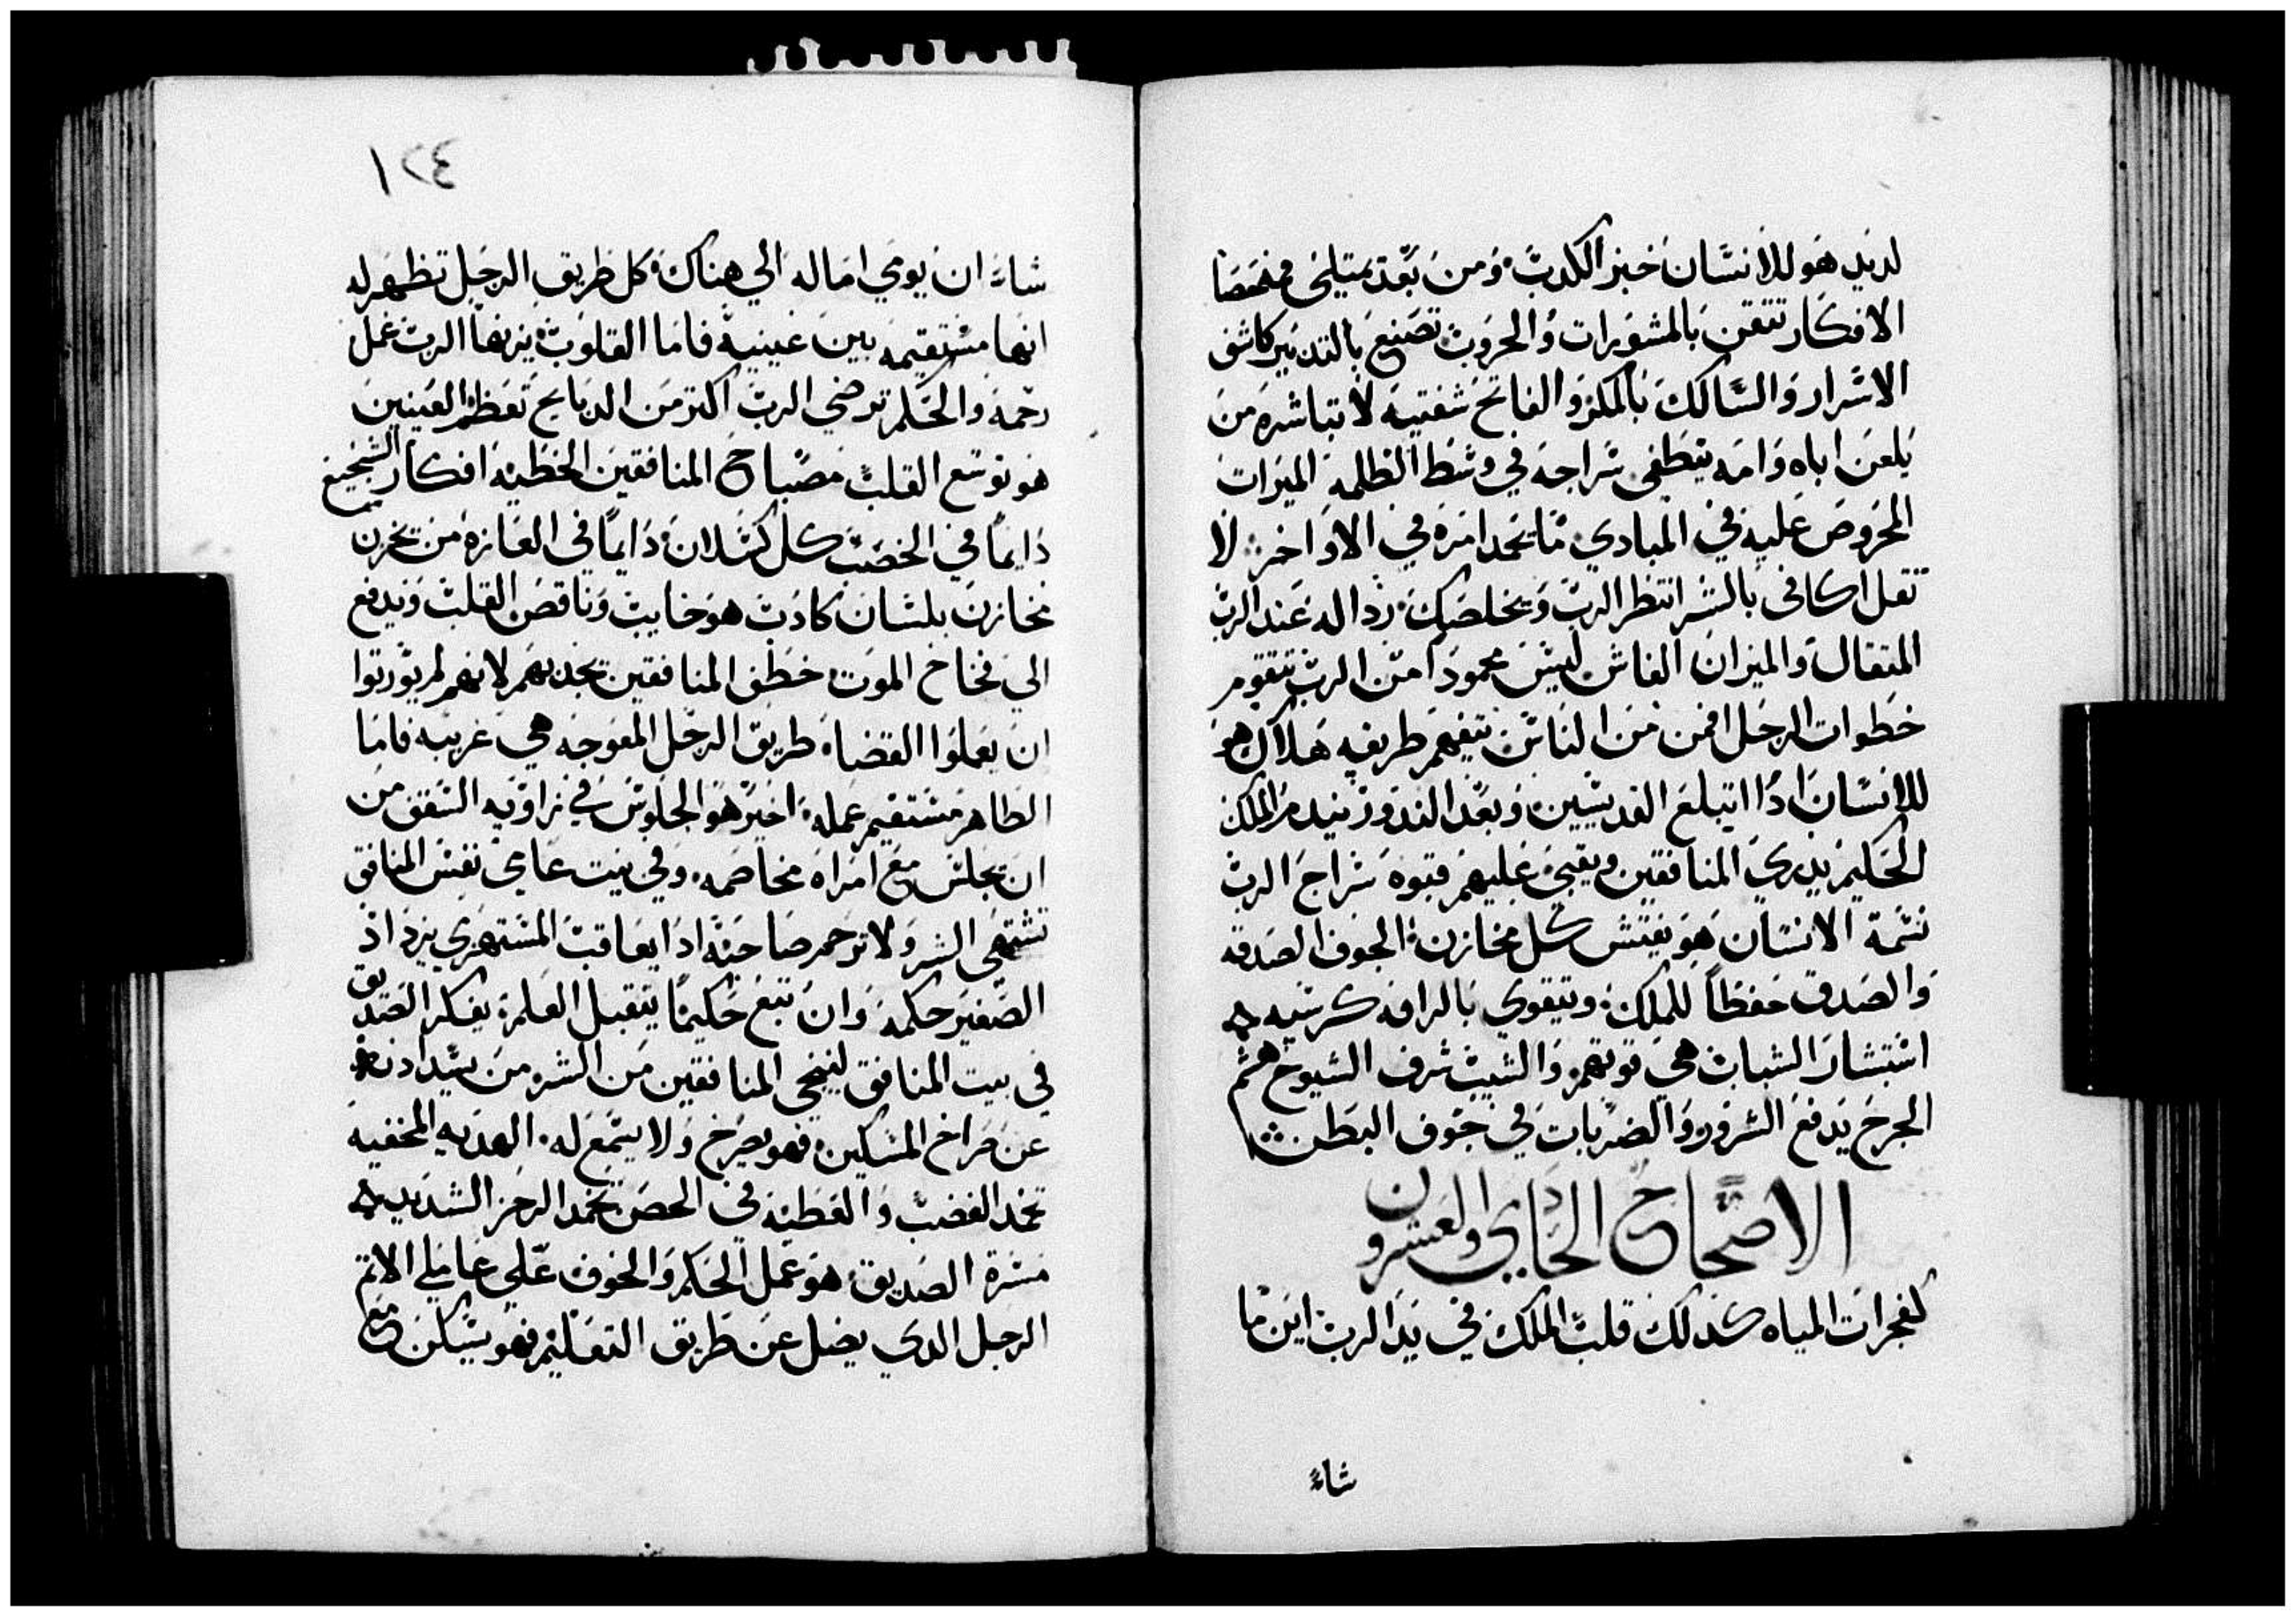 لديد هو للانسان خبز الكدب ومن بعد يمتلي فمه حصا
الافكار تتقن بالمشورات والحروب تصنع بالتدبير كاشف
الاسرار والسالك بالمكر والفاتح شفتيه لا تباشره من
يلعن اباه وامه ينطفي سراجه في وسط الظلمه الميرات
المحروص عليه في المبادي ما تحمد امره في الاواخر لا
تقل اكافي بالشر انتظر الرب ويخلصك ردالة عند الرب
المتقال والميزان الغاش ليس محمودا من الرب تتقوم
خطوات الرجل فمن من الناس يتفهم طريقه هلاك هو
للانسان ادا ابتلع القديسين وبعد الندور يندم الملك
الحكيم يدري المنافقين ويقبي عليهم قبوه سراج الرب
نسمة الانسان هو يفتش كل مخازن الجوف الصدقه
والصدق حفظا للملك ويتقوي بالرافه كرسيه
استبشار الشباب هي قوتهم والشيب شرف الشيوخ هشم
الجرح يدفع الشرور والضربات في جوف البطن
الاصحاح الحادي والعشرون
كفجرات المياه كدلك قلب الملك في يد الرب اين ما
شاء
١٢٤
شاء ان يومي اماله الي هناك كل طريق الرجل تظهر له
انها مستقيمه بين عينيه فاما القلوب يزنها الرب عمل
رحمه والحكم ترضي الرب اكتر من الدبايح تعظم العينين
هو توسع القلب مصباح المنافقين الخطيه افكار الشجيع
دايما في الخصب كل كسلان دايما في العازه من يخزن
مخازن بلسان كادب هو خايب وناقص القلب ويدفع
الي فخاخ الموت خطف المنافقين تجدبهم لانهم لم يوريوا
ان يعملوا القضاء طريق الرجل المعوجه هي غريبه فاما
الطاهر مستقيم عمله اخير هو الجلوس في زاويه السقف من
ان تجلس مع امراه مخاصمه وفي بيت عامي نفس المنافق
تشتهي الشر ولا ترحم صاحبه ادا يعاقب المستهزي يزداد
الصغير حكمه وان تبع حكيما يتقبل العلم يفكر الصديق
في بيت المنافق لينجي المنافقين من الشر من يسد ادنه
عن صراخ المسكين فهو يصرخ ولا يسمع له الهديه المخفيه
تخمد الغضب والعطيه في الحصن تخمد الرجز الشديد
مسرة الصديق هو عمل الحكم والخوف علي عاملي الاتم
الرجل الدي يضل عن طريق التعليم فهو يسكن مع